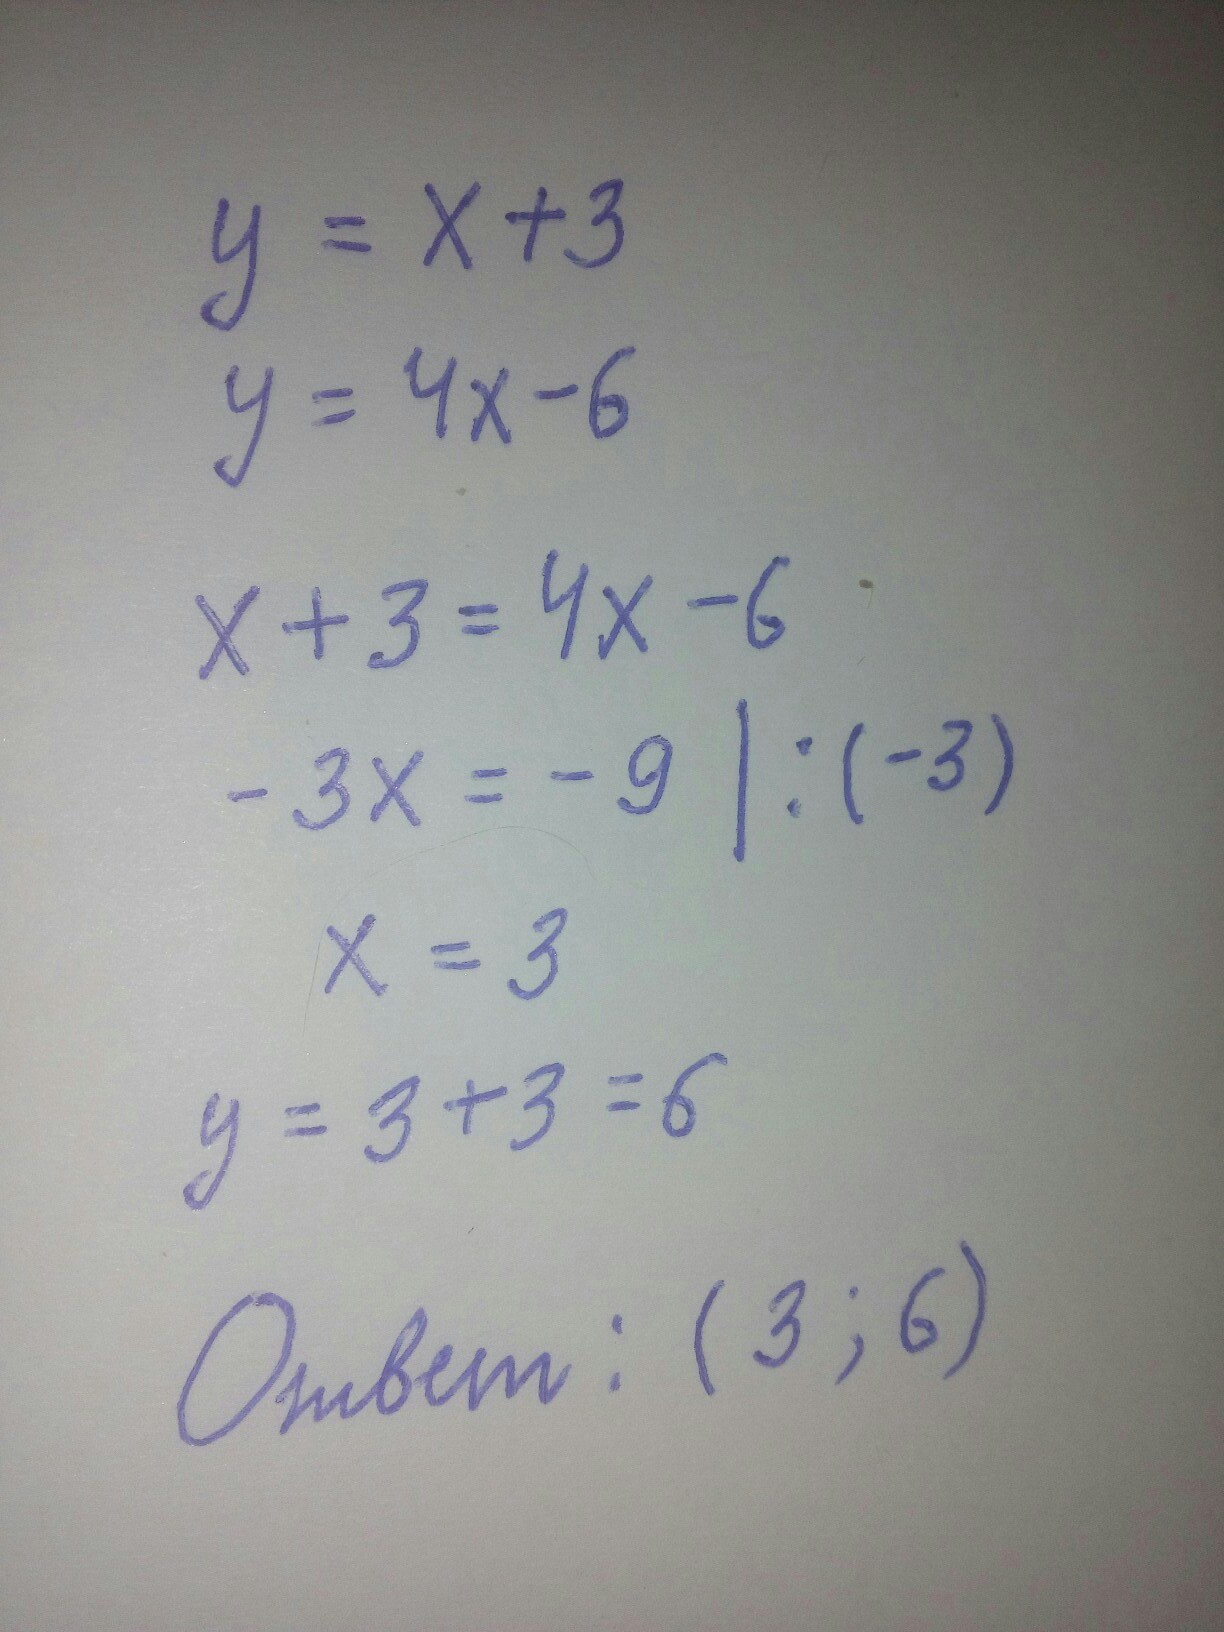 y = x + 3
y = 4x - 6
x + 3 = 4x - 6
- 3x = - 9 | : (-3)
x = 3
y = 3 + 3 = 6
Ответ : ( 3 ; 6 )